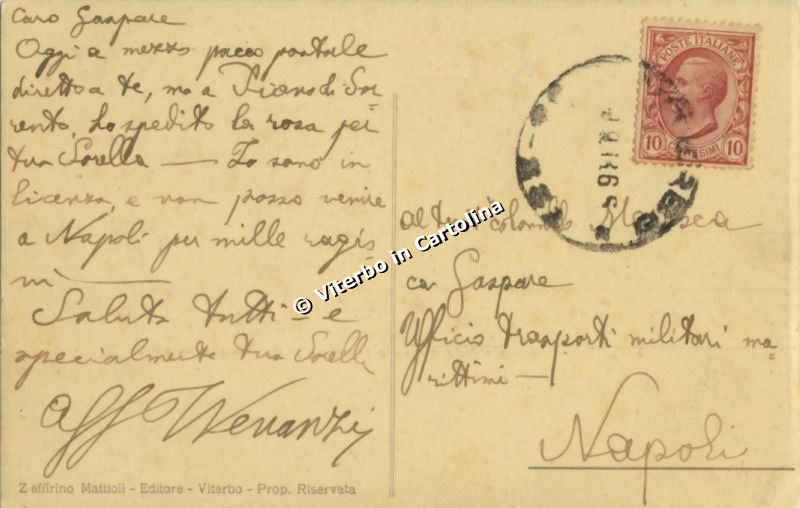 Caro Gaspare
Oggi a mezzo pacco postale
diretto a te, ma a Piano di Sor
rento, ho spedito la rosa per
tua Sorella — Io sono in
licenza, e non posso venire
a Napoli per mille ragio
ni —
Saluta tutti = e
specialmente tua Sorella
Aff Venanzi
Zeffirino Mattioli - Editore - Viterbo - Prop. Riservata
© Viterbo in Cartolina
POSTE ITALIANE
10 CENTESIMI 10
al colonnello Maresca
cav Gaspare
Ufficio trasporti militari ma
rittimi —
Napoli